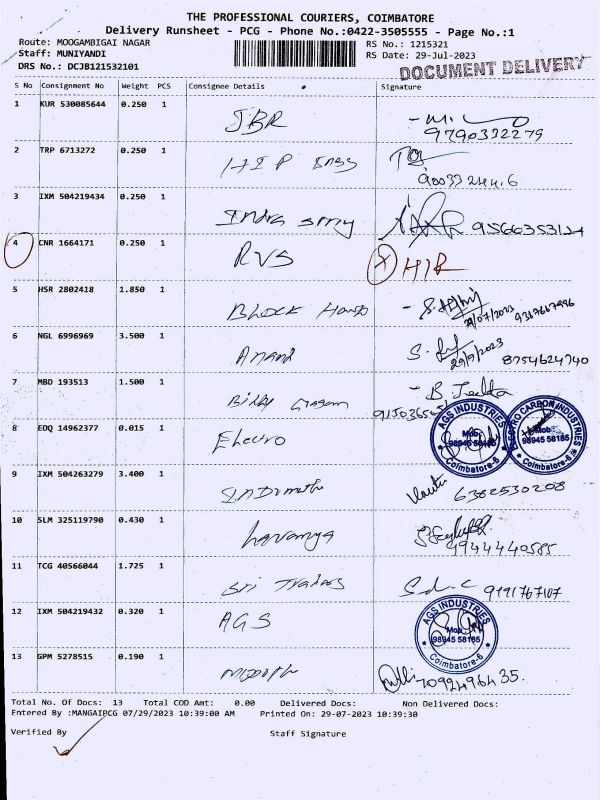 THE PROFESSIONAL COURIERS, COIMBATORE
Delivery Runsheet - PCG - Phone No.:0422-3505555 - Page No.:1
Route: MOOGAMBIGAI NAGAR RS No.: 1215321
Staff: MUNIYANDI RS Date: 29-Jul-2023
DRS No.: DCJB121532101 DOCUMENT DELIVERY
S No Consignment No Weight PCS Consignee Details Signature
1 KUR 530085644 0.250 1 JBR
9790332279
2 TRP 6713272 0.250 1 HIP
3 IXM 504219434 0.250 1 Indra 9566353124
4 CNR 1664171 0.250 1 RVS
5 HSR 2802418 1.850 1 Block
29/07/2023 9317667996
6 NGL 6996969 3.500 1 Anand S. 29/7/2023 8754624740
7 MBD 193513 1.500 1 B.
8 EDQ 14962377 0.015 1 Electro
AGS INDUSTRIES Mob: 98945 58185 Coimbatore-6
ELECTRO CARBON INDUSTRIES Mob: 98945 58185 Coimbatore-6
9 IXM 504263279 3.400 1 6382530208
10 SLM 325119790 0.430 1 Lavanya
9944440585
11 TCG 40566044 1.725 1 Sri Traders 9191767107
12 IXM 504219432 0.320 1 AGS
AGS INDUSTRIES Mob: 98945 58185 Coimbatore-6
13 GPM 5278515 0.190 1 7092496435.
Total No. Of Docs: 13 Total COD Amt: 0.00 Delivered Docs: Non Delivered Docs:
Entered By :MANGAIPCG 07/29/2023 10:39:00 AM Printed On: 29-07-2023 10:39:30
Verified By Staff Signature